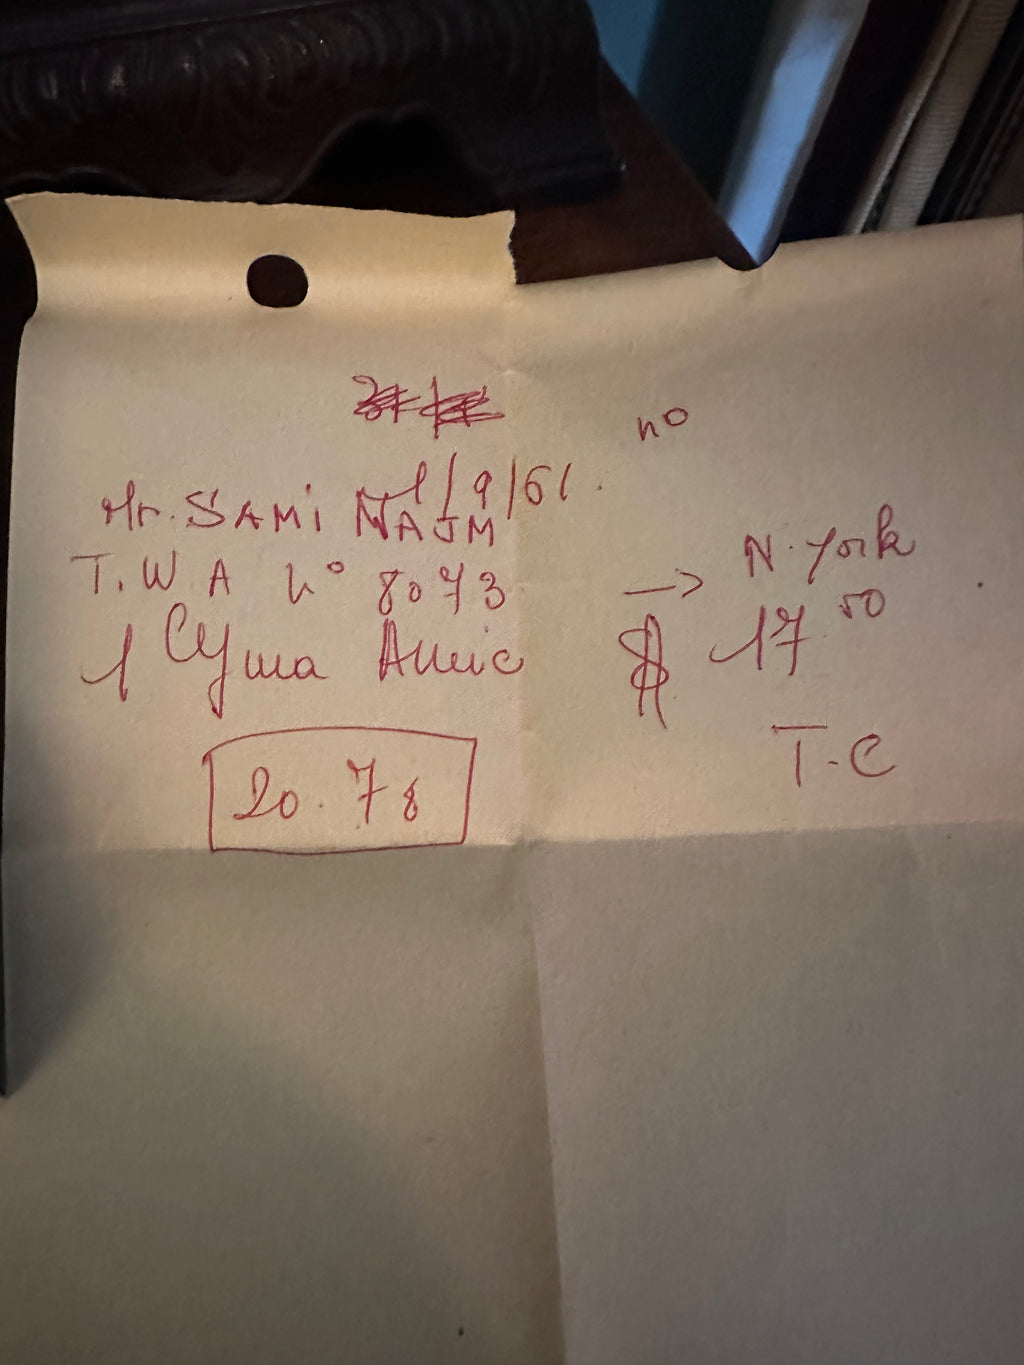 no
1/9/61.
Mr. SAMi NAJM
T.W A no 8073 → N. York
1 Cyma Amic $ 17 50
T-C
20.78